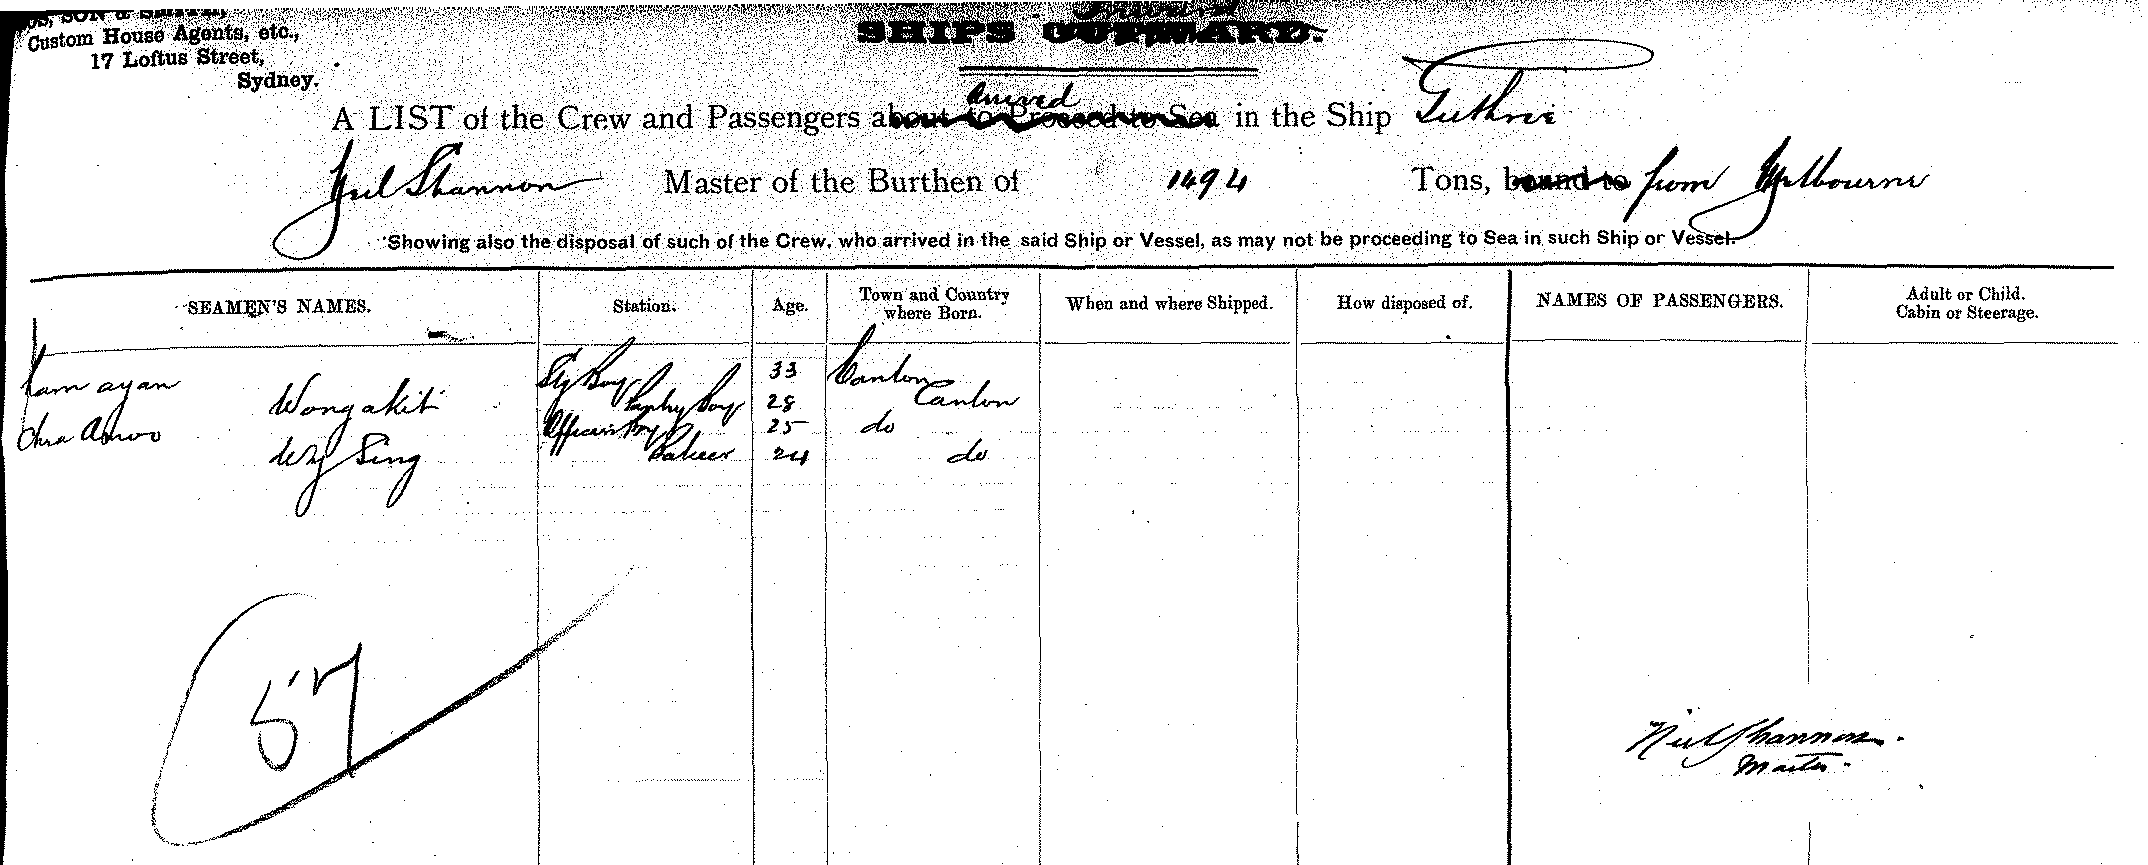 SON & SMITH,
Custom House Agents, etc.,
17 Loftus Street,
Sydney.
SHIPS OUTWARD.
arrived
A LIST of the Crew and Passengers about to Proceed to Sea in the Ship Guthrie
Neil Shannon Master of the Burthen of 1494 Tons, bound to from Melbourne
Showing also the disposal of such of the Crew, who arrived in the said Ship or Vessel, as may not be proceeding to Sea in such Ship or Vessel.
SEAMEN'S NAMES. Station. Age. Town and Country where Born. When and where Shipped. How disposed of. NAMES OF PASSENGERS. Adult or Child. Cabin or Steerage.
Kam ayan Boy 33 Canton
Wong akit Pantry Boy 28 Canton
Boy 25 do
Sing Baker 24 do
57
Neil Shannon.
Master.